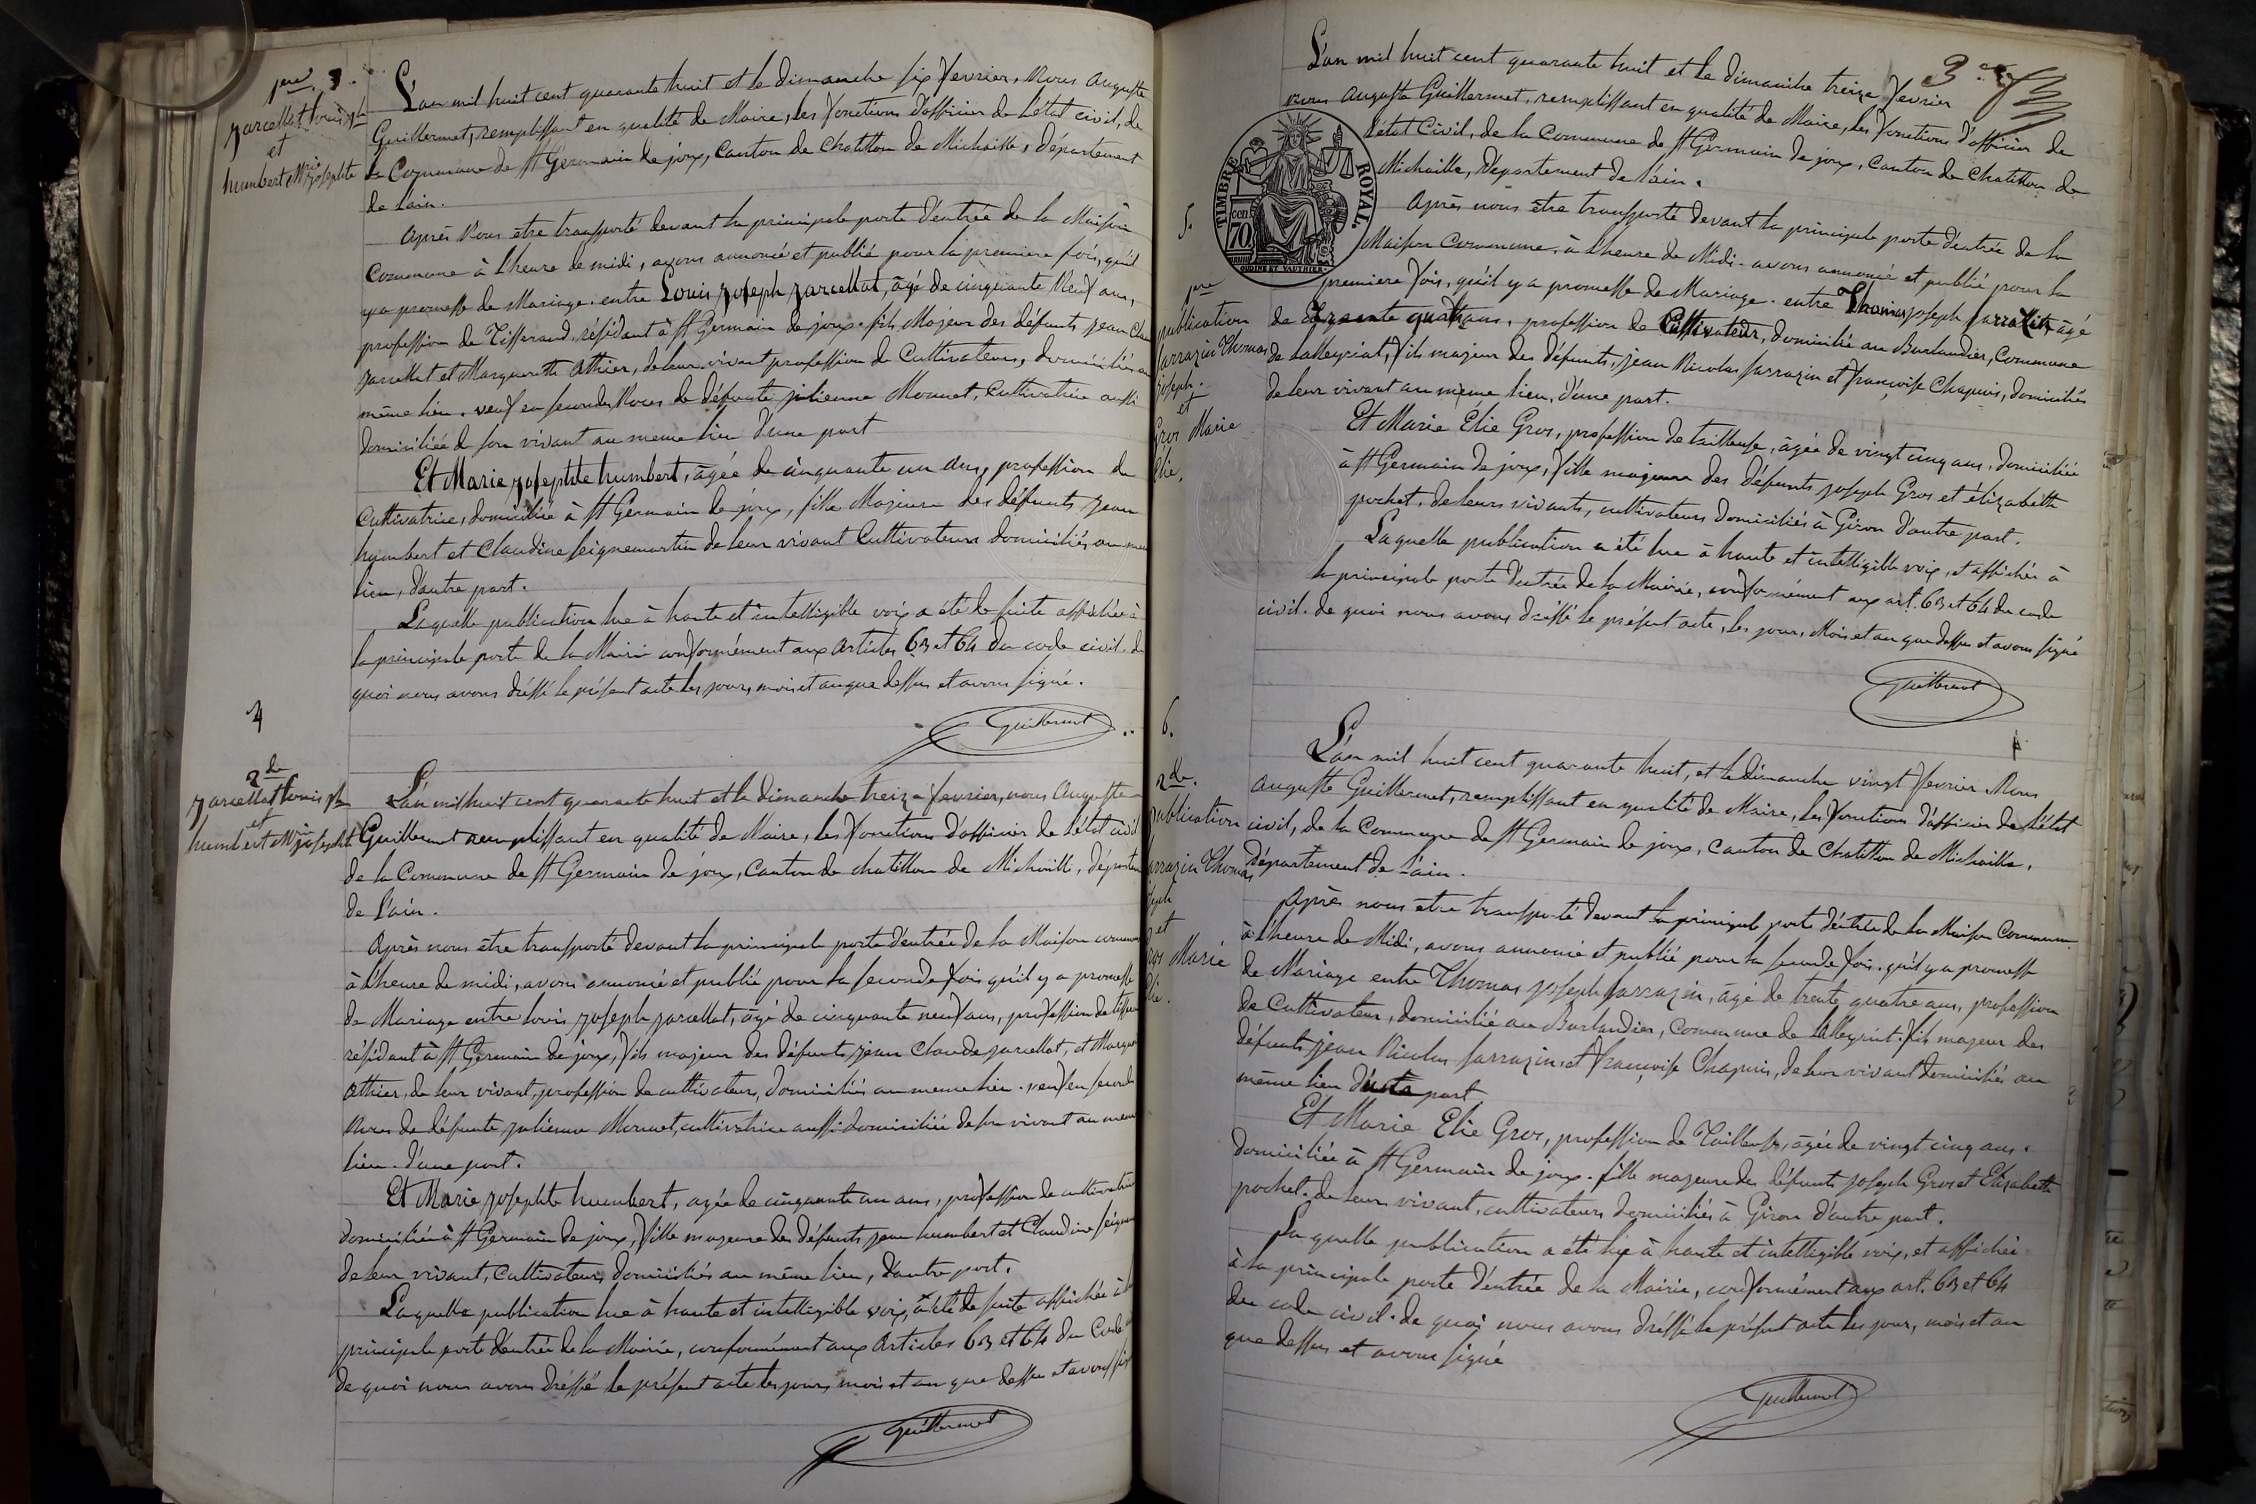 1ere 3.
Jarcellat Louis Jph
et
humbert Mie josephte
L'an mil huit cent quarante huit et le dimanche six fevrier, Nous Auguste
Guillermet, remplissant en qualité de Maire, les fonctions d'officier de L'état civil, de
la Commune de St Germain de joux, Canton de Chatillon de Michaille, département
de lain.
Après Nous être transporté devant la principale porte d'entrée de la Maison
Commune à L'heure de midi, avons annoncé et publié pour la premiere fois, qu'il
y a promesse de Mariage. entre Louis Joseph Jarcellat, âgé de cinquante Neuf ans,
profession de Tisserand, résidant à St Germain de joux. fils Majeur des défunts jean Claude
Jarcellat et Marguerite Athier, de leur vivant profession de Cultivateurs, domiciliés au
même lieu. veuf en secondes Noces de défunte julienne Monnet, Cultivatrice aussi
domiciliée de son vivant au meme lieu d'une part
Et Marie Josephte humbert, âgée de cinquante un ans, profession de
Cultivatrice, domiciliée à St Germain de joux, fille Majeure des défunts Jean
humbert et Claudine seignemartin de leur vivant Cultivateurs domiciliés au meme
lieu, d'autre part.
Laquelle publication lue à haute et intelligible voix a été de suite affichée à
la principale porte de la Mairie conformément aux Articles 63 et 64 du code civil. de
quoi nous avons dréssé le présent acte les jours, mois et an que dessus et avons signé.
Guillermet
4
2de
Jarcellat Louis Jph
et
humbert Mie josephte
L'an mil huit cent quarante huit et le dimanche treize fevrier, nous Auguste
Guillermet remplissant en qualité de Maire, les fonctions d'officier de l'état civil
de la Commune de St Germain de joux, Canton de chatillon de Michaille, département
de L'ain.
Après nous être transporté devant la principale porte d'entrée de la Maison commune
à l'heure de midi, avons annoncé et publié pour la seconde fois qu'il y a promesse
de Mariage entre Louis Joseph Jarcellat, âgé de cinquante neuf ans, profession de tisserand
résidant à St Germain de joux, fils majeur des défunts jean Claude jarcellat, et Marguerite
Athier, de leur vivant, profession de cultivateurs, domiciliés au meme lieu. veuf en secondes
Noces de défunte Julienne Monnet, cultivatrice aussi domiciliée de son vivant au meme
lieu. d'une part.
Et Marie Josephte humbert, agée de cinquante un ans, profession de cultivatrice
domiciliée à St Germain de joux, fille majeure des défunts jean humbert et Claudine seigne
de leur vivant, Cultivateurs, domiciliés au même lieu, d'autre part.
Laquelle publication lue à haute et intelligible voix, a été de suite affichée à la
principale porte d'entrée de la Mairie, conformément aux Articles 63 et 64 du Code
de quoi nous avons dréssé le présent acte les jours, mois et an que dessus et avons signé
Guillermet
3.
L'an mil huit cent quarante huit et le dimanche treize fevrier
nous Auguste Guillermet, remplissant en qualité de Maire, les fonctions d'officier de
l'état Civil, de la Commune de St Germain de joux, Canton de Chatillon de
Michaille, Département de L'ain.
TIMBRE ROYAL.
cen
70
OUDINE ET VAUTHIER
5.
Après nous être transporté devant la principale porte d'entrée de la
Maison Commune, à L'heure de Midi. avons annoncé et publié pour la
premiere fois, qu'il y a promesse de Mariage. entre Thomas joseph sarrazin, âgé
de quatre ans, profession de Cultivateur, domicilié au Burlandier, Commune
de Lalleyriat, fils majeur des défunts, jean Nicolas sarrazin et françoise Chapuis, domiciliés
de leur vivant au même lieu, d'une part.
1ere
publication
sarrazin Thomas
joseph.
et
Gros Marie
Elie.
Et Marie Élie Gros, profession de tailleuse, âgée de vingt cinq ans, domiciliée
à St Germain de joux, fille majeure des défunts joseph Gros et élizabeth
pochet, de leurs vivants, cultivateurs domiciliés à Giron d'autre part.
Laquelle publication a été lue à haute et intelligible voix, et affichée à
la principale porte d'entrée de la Mairie, conformément aux art. 63 et 64 du code
civil. de quoi nous avons dréssé le présent acte, les jours, Mois et an que dessus et avons signé
Guillermet
6.
2de.
publication
sarrazin Thomas
joseph
et
Gros Marie
Elie.
L'an mil huit cent quarante huit, et le dimanche vingt fevrier. Nous
Auguste Guillermet, remplissant en qualité de Maire, les fonctions d'officier de l'état
civil, de la Commune de St Germain de joux, Canton de Chatillon de Michaille,
département de L'ain.
Après nous être transporté devant la principale porte d'entrée de la Maison Commune
à l'heure de Midi, avons annoncé et publié pour la seconde fois. qu'il y a promesse
de Mariage entre Thomas joseph sarrazin, âgé de trente quatre ans, profession
de Cultivateur, domicilié au Burlandier, Commune de Lalleyriat. fils majeur des
défunts jean Nicolas sarrazin, et françoise Chapuis, de leur vivant domiciliés au
même lieu d'une part
Et Marie Elie Gros, profession de Tailleuse, âgée de vingt cinq ans.
domiciliée à St Germain de joux. fille majeure des défunts joseph Gros et Elisabeth
pochet. de leur vivant, cultivateurs domiciliés à Giron d'autre part.
La quelle publication a été lue à haute et intelligible voix, et affichée
à la principale porte d'entrée de la Mairie, conformément aux art. 63 et 64
du code civil. de quoi nous avons dréssé le présent acte les jour, mois et an
que dessus et avons signé
Guillermet